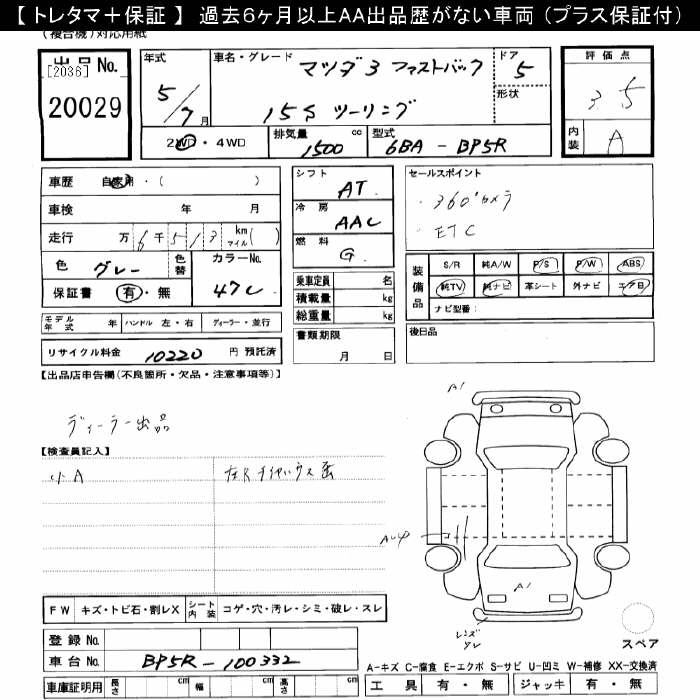 【 トレタマ＋保証 】 過去６ヶ月以上ＡＡ出品歴がない車両 （プラス保証付）
(複合機)対応用紙
出品 No.
[2036]
20029
年式
5/7月
車名・グレード
マツダ3 ファストバック
15S ツーリング
ドア
5
形状
評価点
3.5
内装
A
2WD・4WD
排気量
1500 cc
型式
6BA - BP5R
車歴 自家用・( )
車検 年 月
走行 万 6千 5 1 3 km マイル( )
色 グレー 色替 カラーNo. 47C
保証書 有・無
シフト AT
冷房 AAC
燃料 G
セールスポイント
・360°カメラ
・ETC
乗車定員 名
積載量 kg
総重量 kg
装備品 S/R 純A/W P/S P/W ABS
純TV 純ナビ 革シート 外ナビ エアB
ナビ型番：
モデル年式 年 ハンドル 左・右 ディーラー・並行
リサイクル料金 10220 円 預託済
書類期限
月 日
後日品
【出品店申告欄(不良箇所・欠品・注意事項等)】
ディーラー出品
【検査員記入】
小A
A1
A1
レンズ
スレ
スペア
FW キズ・トビ石・割レX シート内装 コゲ・穴・汚レ・シミ・破レ・スレ
登録 No.
車台 No. BP5R-100332
車庫証明用 長さ cm 幅 cm 高さ cm
A-キズ C-腐食 E-エクボ S-サビ U-凹ミ W-補修 XX-交換済
工具 有・無 ジャッキ 有・無